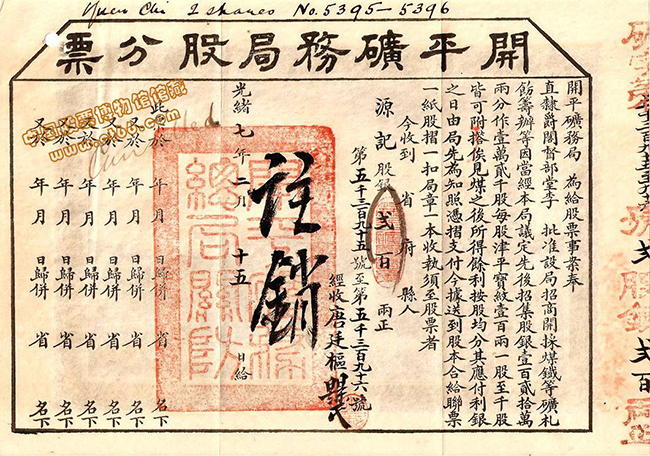 Yuen Chi 2 shares No. 5395—5396
開平礦務局股分票
開平礦務局 為給股票事案奉
直隸爵閣督部堂李 批准設局招商開採煤鐵等礦札
飭籌辦等因當經本局議定先後招集股銀壹百貳拾萬
兩分作壹萬貳千股每股津平寶紋壹百兩一股至千股
皆可附搭俟見煤之後所得餘利按股均分其應付利銀
之日由局先為知照憑摺支付今據送到股本合給聯票
一紙股摺一扣局章一本收執須至股票者
今收到 省 府 縣人
源記 股銀 貳百 兩正
第五千三百九十五號至第五千三百九十六號
經收唐廷樞
註銷
光緒七年二月 十五 日給
此票於 年 月 日歸併 省 名下
又於 年 月 日歸併 省 名下
又於 年 月 日歸併 省 名下
又於 年 月 日歸併 省 名下
又於 年 月 日歸併 省 名下
又於 年 月 日歸併 省 名下
Cancelled
中国证券博物馆馆藏
股銀貳百兩正